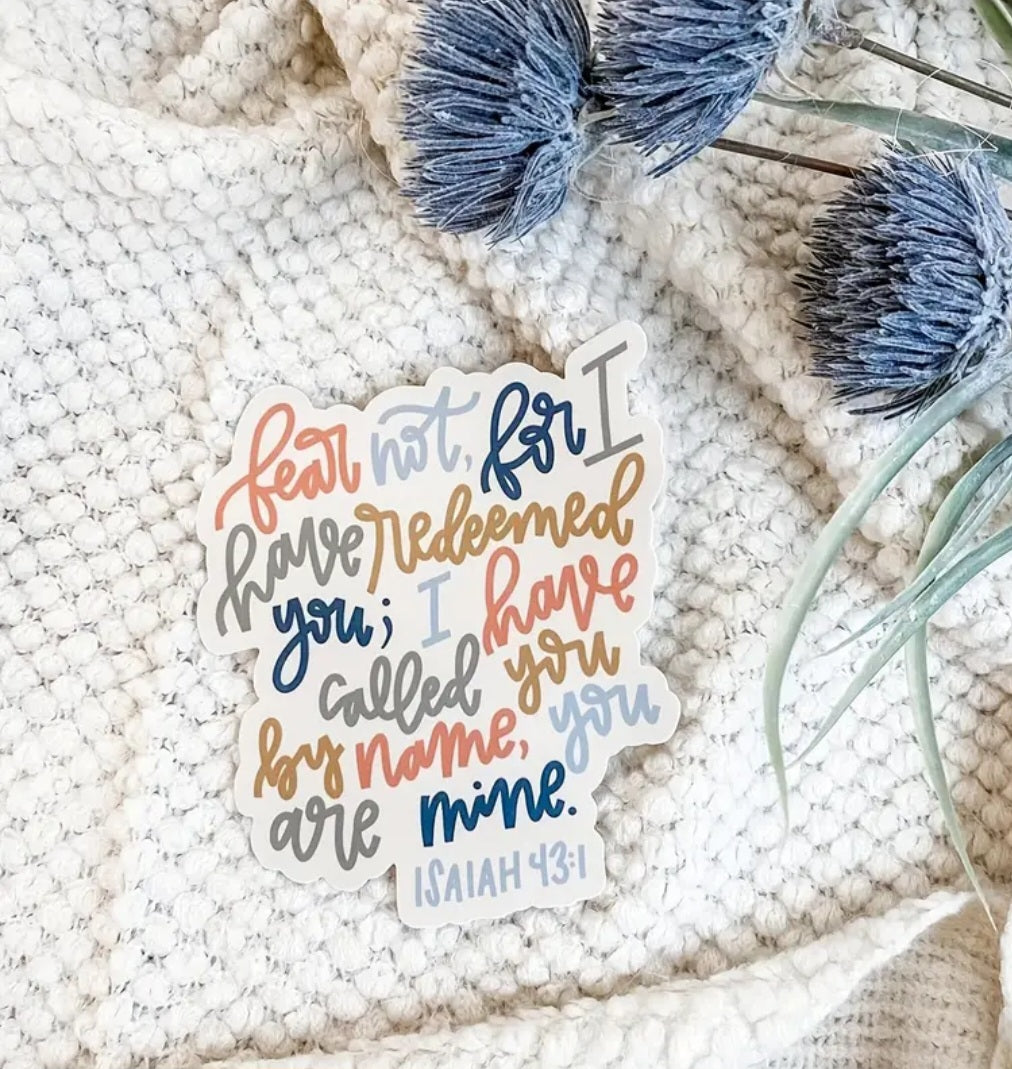 fear not, for I
have redeemed
you; I have
called you
by name, you
are mine.
ISAIAH 43:1